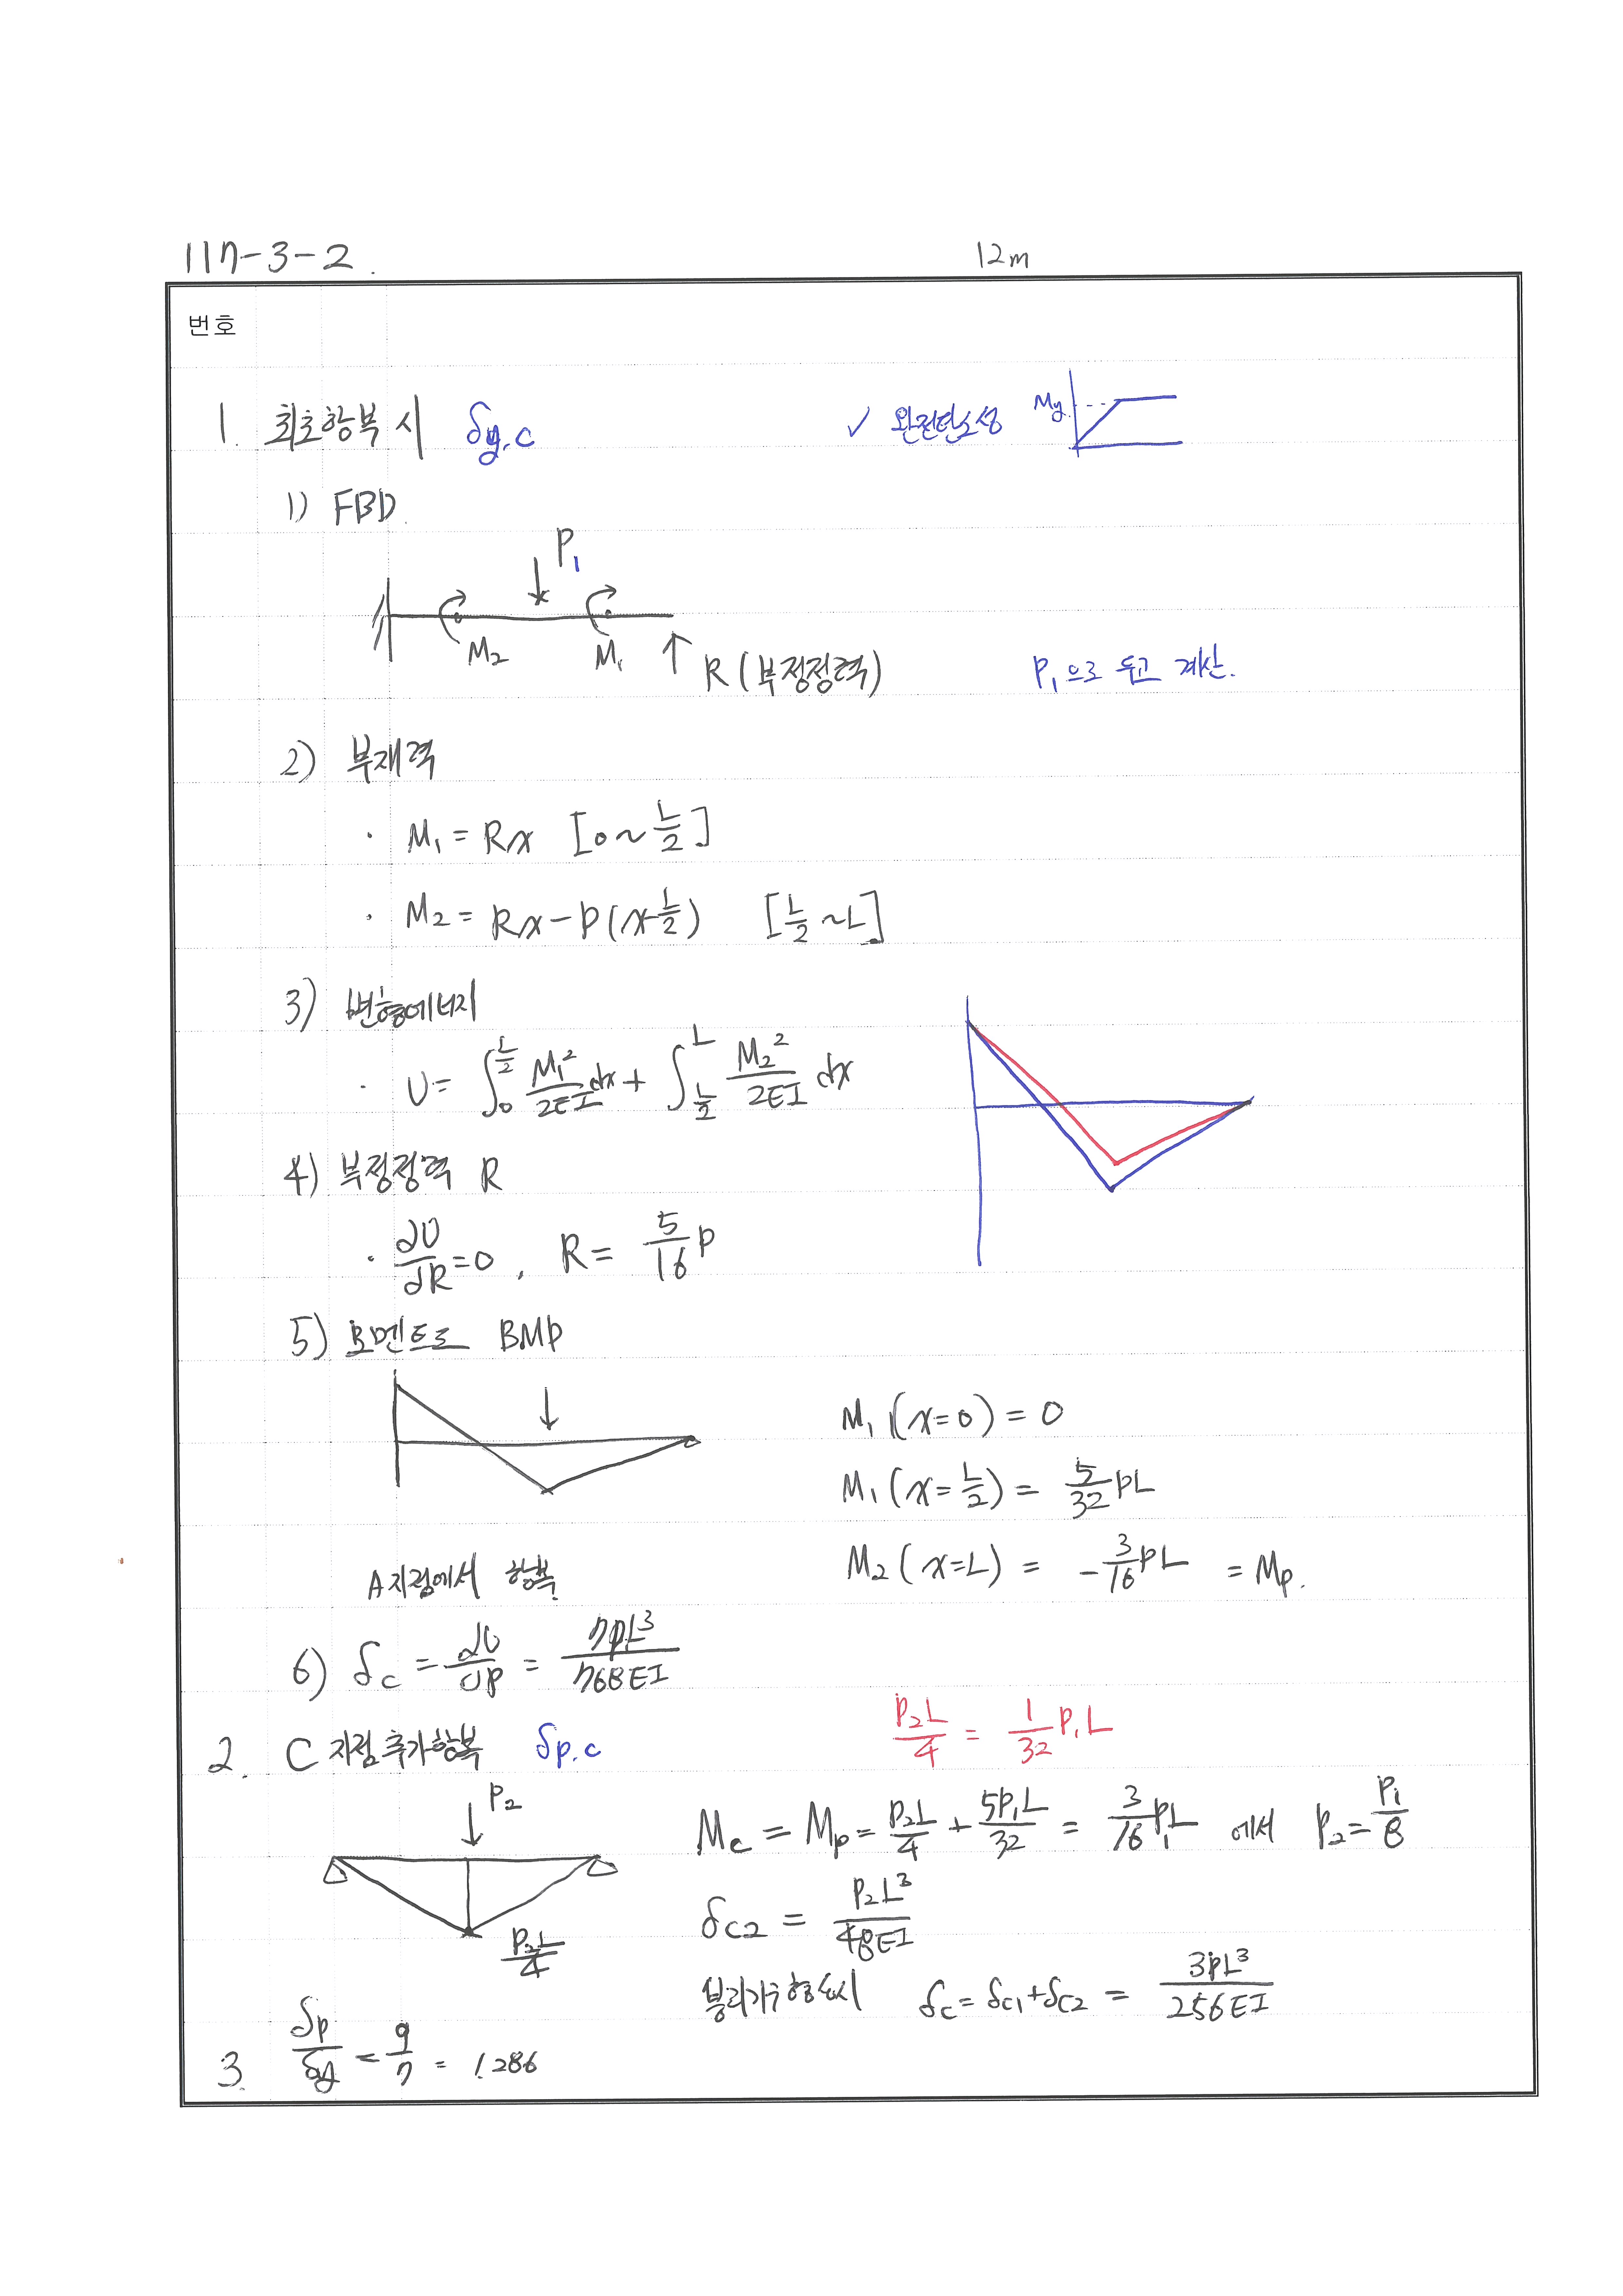 117-3-2.
12m
번호
1. 최초항복 시 δy.c
✓ 완전탄소성 My
1) FBD.
P₁
M₂ M₁ R (부정정력)
P₁으로 두고 계산.
2) 부재력
· M₁ = Rx [0 ~ L/2]
· M₂ = Rx - P(x-L/2) [L/2 ~ L]
3) 변형에너지
· U = ∫₀^(L/2) M₁²/2EI dx + ∫_(L/2)^L M₂²/2EI dx
4) 부정정력 R
· ∂U/∂R = 0, R = 5/16 P
5) 모멘트로 BMD
M₁(x=0) = 0
M₁(x=L/2) = 5/32 PL
M₂(x=L) = -3/16 PL = Mp.
A지점에서 항복.
6) δc = ∂U/∂P = 7PL³/768EI
P₂L/4 = 1/32 P₁L
2. C 지점 추가항복 δp.c
P₂
P₂L/4
Mc = Mp = P₂L/4 + 5P₁L/32 = 3/16 P₁L 에서 P₂ = P₁/8
δc2 = P₂L³/48EI
붕괴기구 형성시 δc = δc1 + δc2 = 3PL³/256EI
3. δp/δy = 9/7 = 1.286